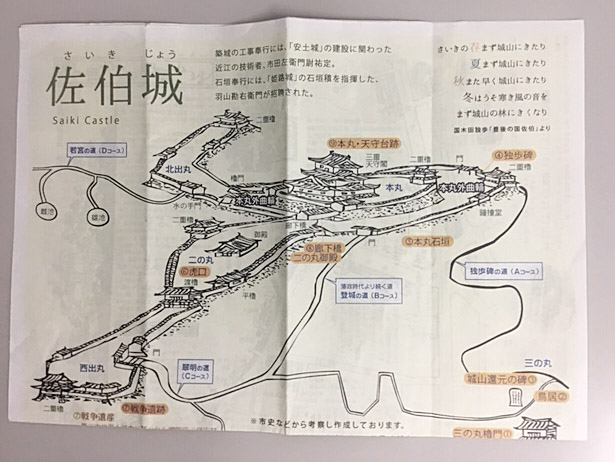 さいき じょう
佐伯城
Saiki Castle
築城の工事奉行には、「安土城」の建設に関わった
近江の技術者、市田左衛門尉祐定。
石垣奉行には、「姫路城」の石垣積を指揮した、
羽山勘右衛門が招聘された。
さいきの春まず城山にきたり
夏まず城山にきたり
秋また早く城山にきたり
冬はうそ寒き風の音を
まず城山の林にきくなり
国木田独歩「豊後の国佐伯」より
若宮の道(Dコース)
雌池
雄池
二重櫓
北出丸
水の手門
櫓門
本丸外曲輪
⑨本丸・天守台跡
三重
天守閣
本丸
二重櫓
門
④独歩碑
二重櫓
本丸外曲輪
鐘撞堂
二重櫓
御殿
二の丸
⑥虎口
渡櫓
平櫓
廊下橋
⑧廊下橋
二の丸御殿
門
⑤本丸石垣
藩政時代より続く道
登城の道(Bコース)
独歩碑の道(Aコース)
西出丸
門
二重櫓
⑦戦争遺産
⑦戦争遺跡
翠明の道
(Cコース)
三の丸
城山還元の碑③
鳥居②
三の丸櫓門①
※市史などから考察し作成しております。